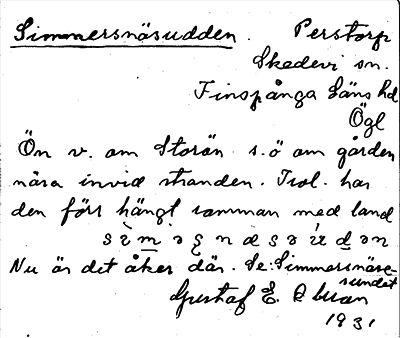 Simmersnäsudden. Perstorp
Skedevi sn.
Finspånga läns hd
Ögl
Ön v. om Storön s.ö om gården
nära invid stranden. Trol. har
den förr hängt samman med land
Nu är det åker där. Se: Simmersnäs-
sundet
Gustaf E.
1931